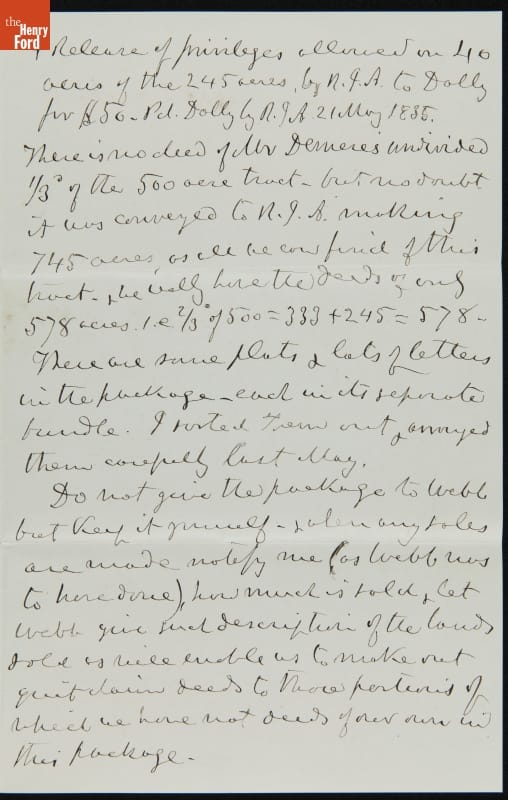 the
Henry
Ford
Release of privileges allowed on 40
acres of the 245 acres, by R.J.A. to Dolly
for $50 - Pd. Dolly by R.J.A 21 May 1835.
There is no deed of Mr Demere's undivided
1/3d of the 500 acre tract - but no doubt
it was conveyed to R.J.A. making
745 acres, as all we can find of this
tract - & we really have the deeds of only
578 acres. i.e 2/3ds of 500 = 333 + 245 = 578 -
There are some plats & lots of letters
in the package - each in its separate
bundle. I sorted them out & arranged
them carefully last May.
Do not give the package to Webb
but keep it yourself - & when any sales
are made notify me (as Webb was
to have done), how much is sold, & let
Webb give such description of the lands
sold as will enable us to make out
quit claim deeds to those portions of
which we have not deeds of our own in
this package.